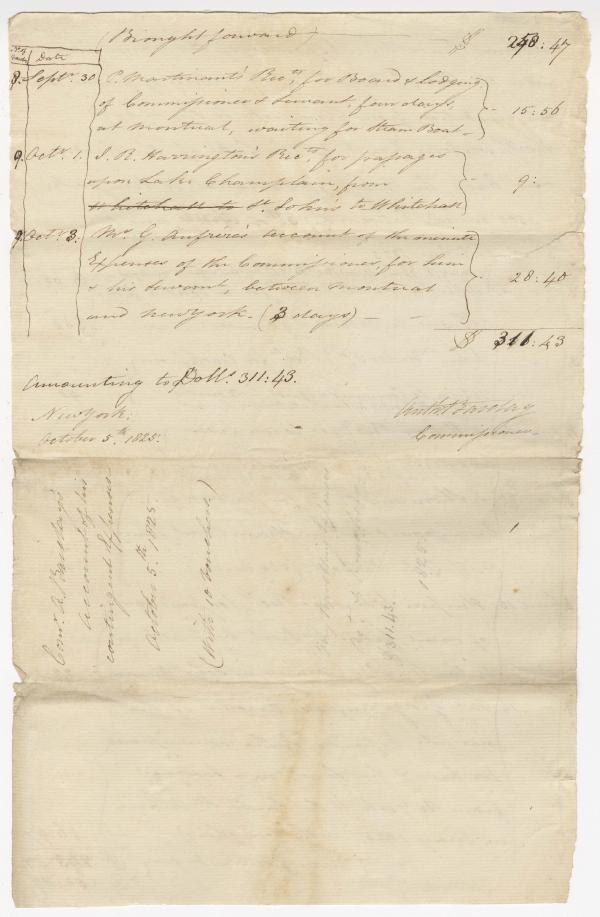 (Brought forward) $ 258:47
No. of Vouchr Date
8. Septr. 30 C. Martinant's Rect. for Board & Lodging
of Commissioner & Servant, four days,
at Montreal, waiting for Steam Boat - 15:56
9. Octr. 1. J. R. Harrington's Rect. for passages
upon Lake Champlain, from
Whitehall to St. Johns to Whitehall 9:
9. Octr. 3: Mr. G. Aufrère's account of the minute
Expenses of the Commissioner, for him
& his Servant, between Montreal
and New York. (3 days) - - 28:40
$ 311:43
Amounting to Dolls. 311:43.
New York: Anth. Barclay
October 5th. 1825: Commissioner
Comr. A. Barclay's
account of his
contingent Expenses
October 5th. 1825.
(With 10 vouchers.)
$311.43.
1825